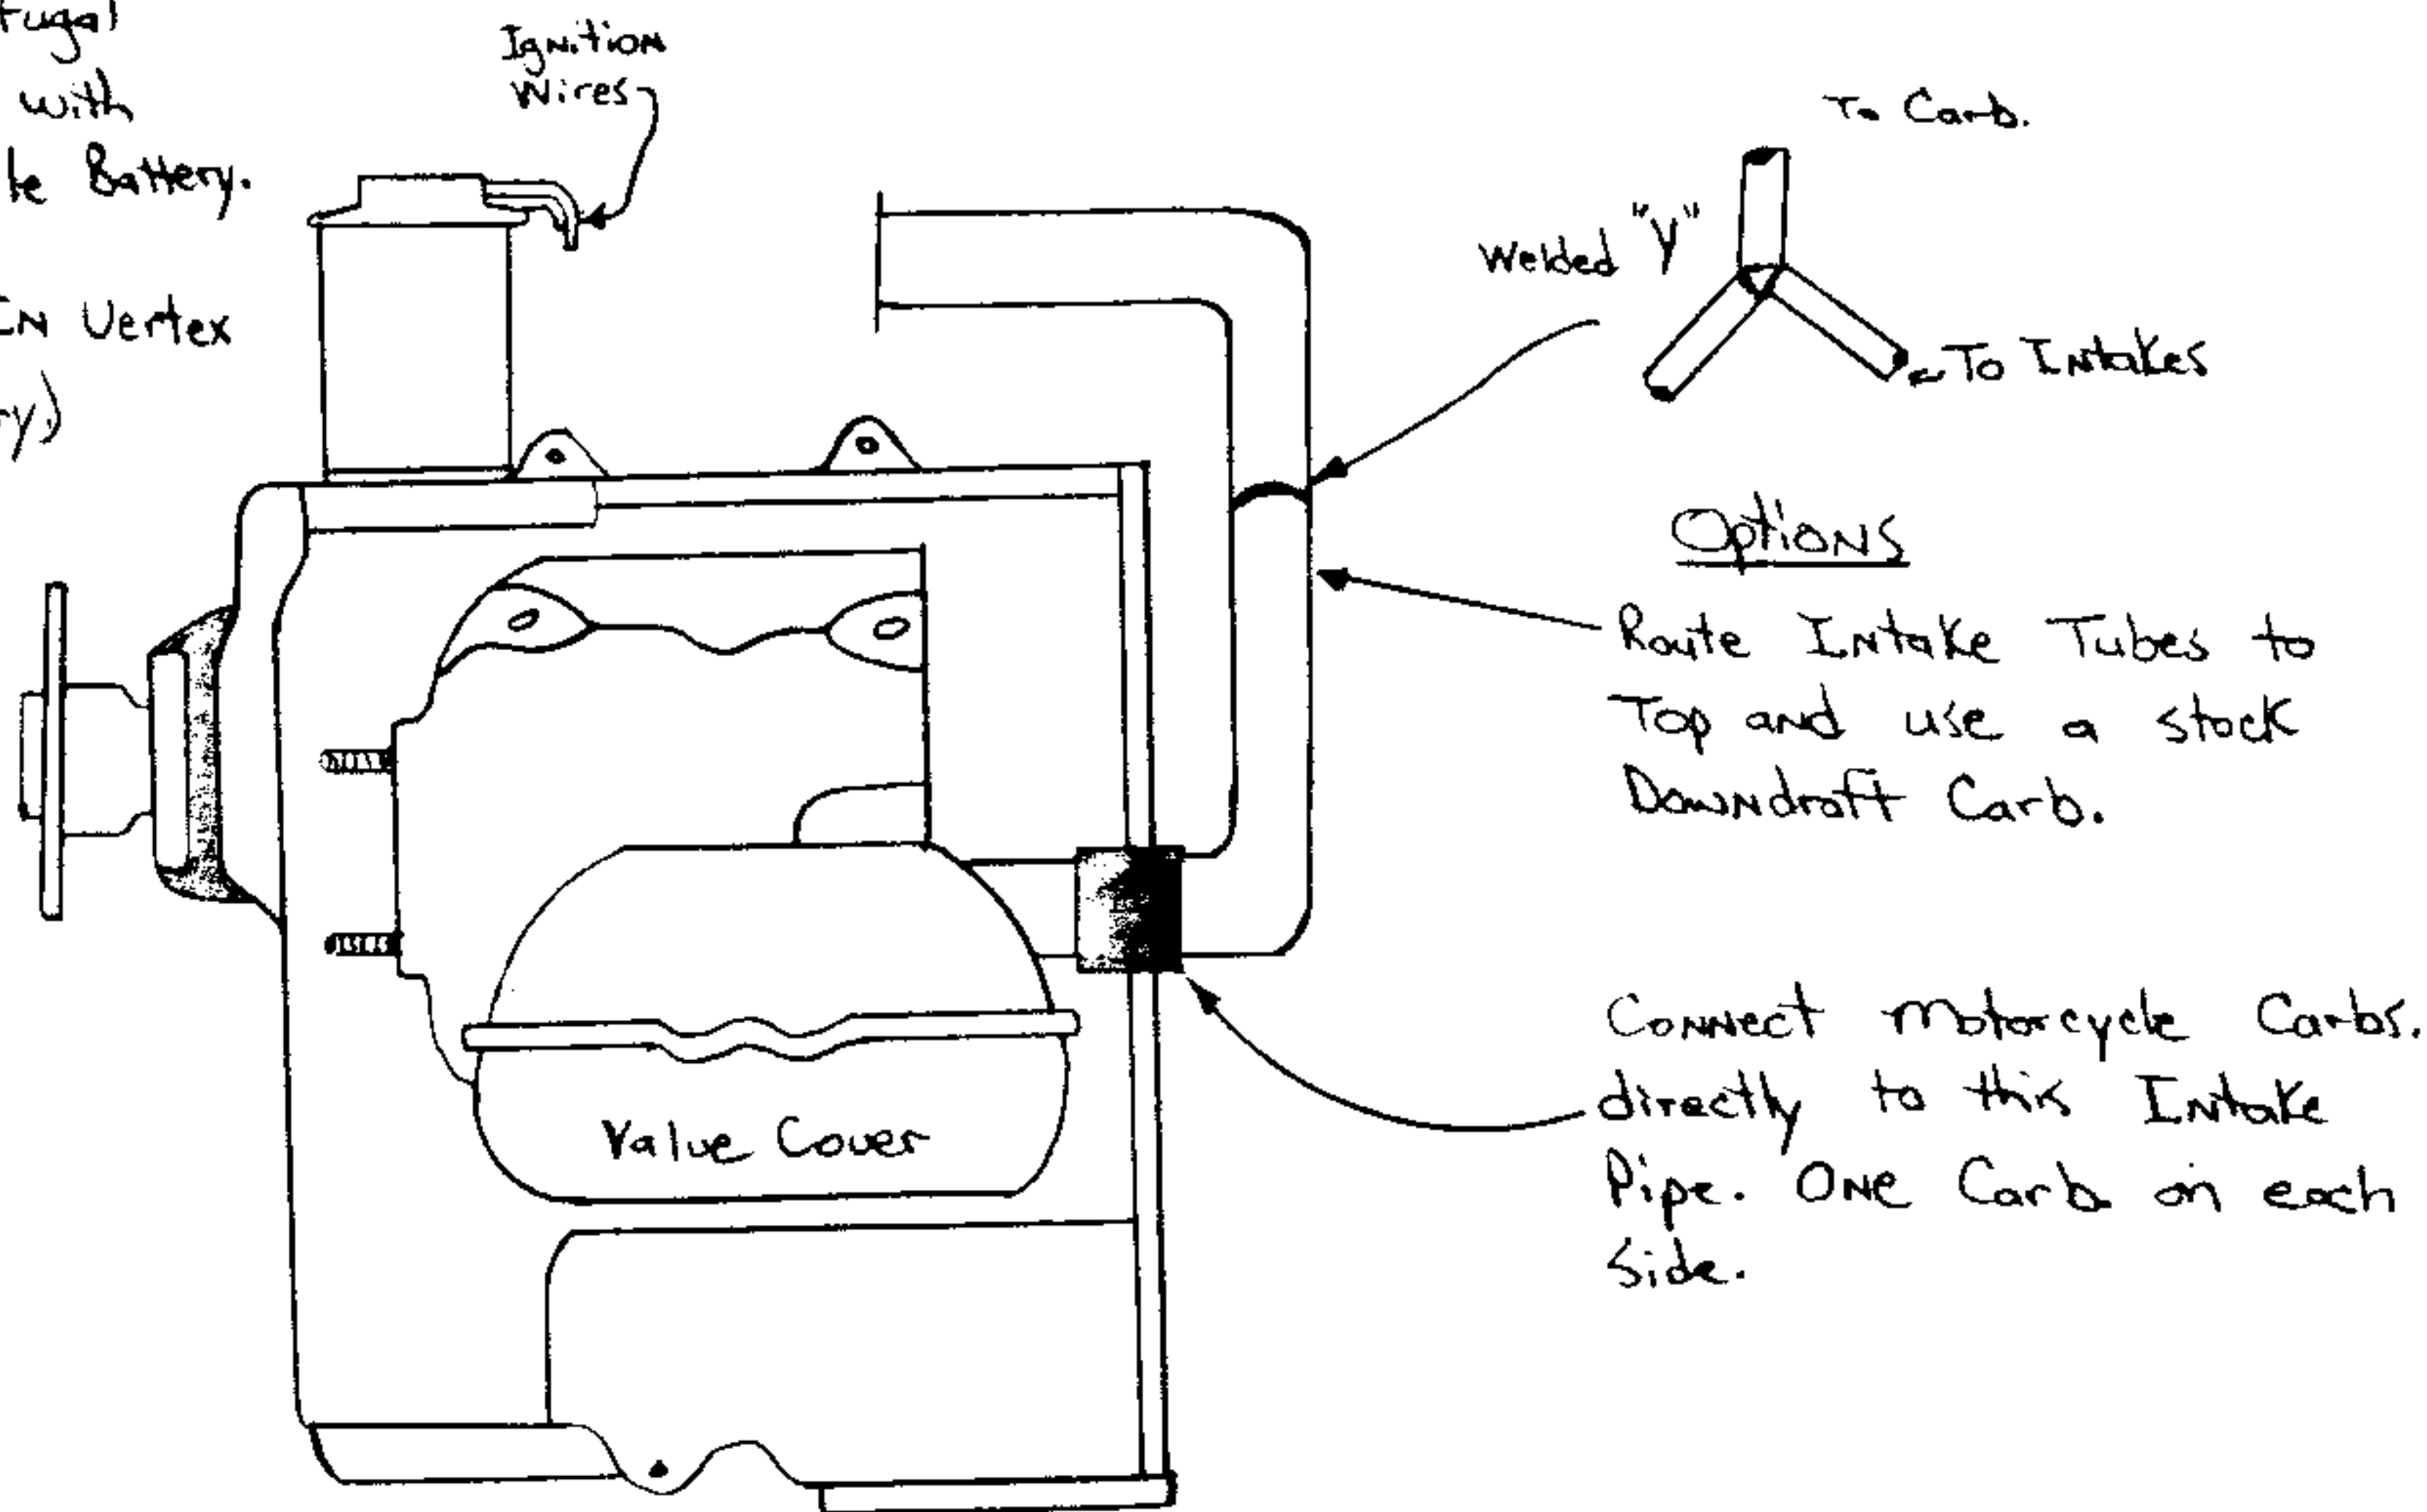 with
Battery.
IN Vertex
Ignition
Wires
To Carb.
Welded "Y"
To Intakes
Options
Route Intake Tubes to
Top and use a stock
Downdraft Carb.
Connect motorcycle Carbs.
directly to this Intake
Pipe. ONE Carb on each
side.
Valve Cover